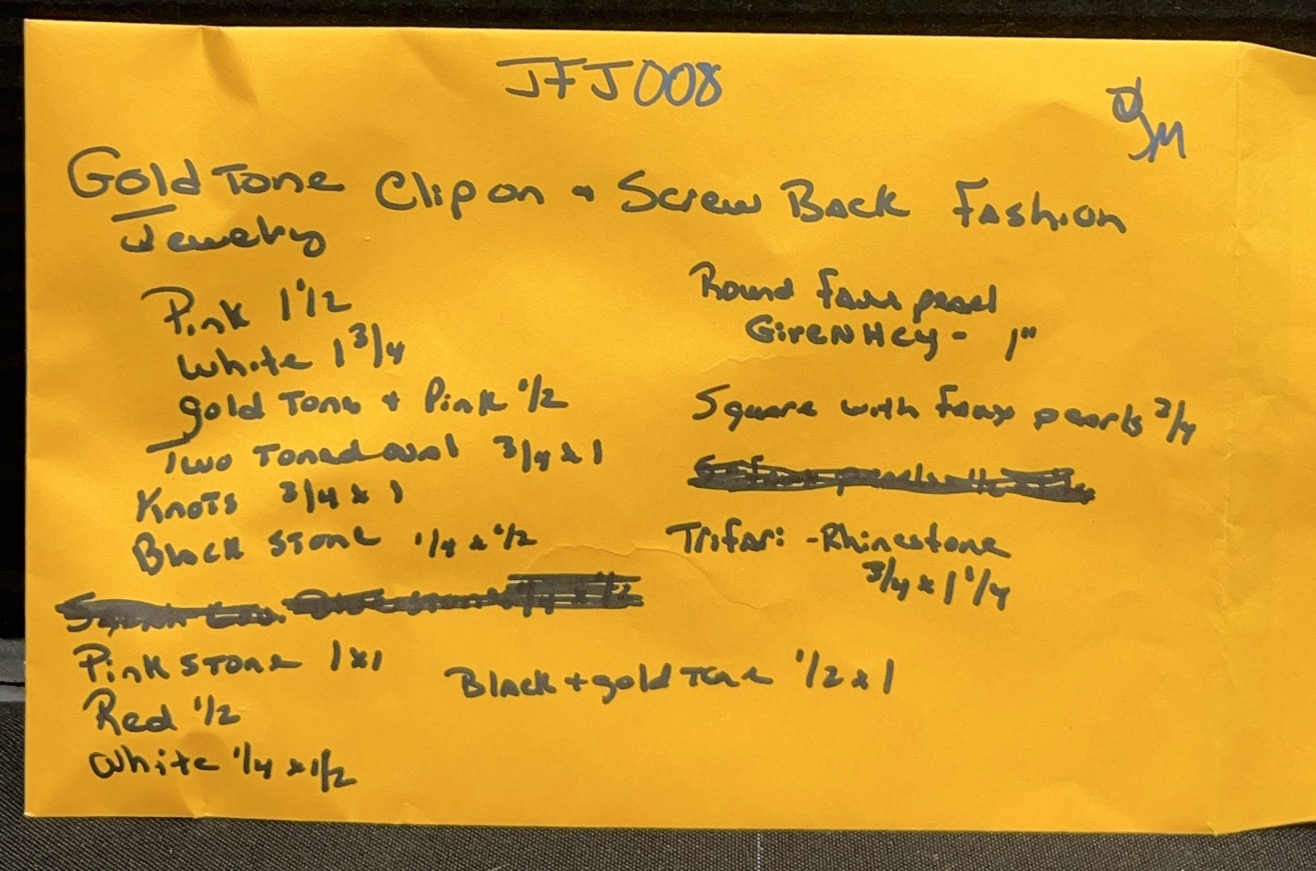 JFJ008
Gold Tone Clip on + Screw Back Fashion
Jewelry
Pink 1 1/2
White 1 3/4
gold Tone + Pink 1/2
Two Toned oval 3/4 x 1
Knots 3/4 x 1
Black Stone 1/4 x 1/2
Pink Stone 1x1
Red 1/2
White 1/4 x 1/2
Round Faux pearl
GireNHey - 1"
Square with Faux pearls 3/4
Trifari - Rhinestone
3/4 x 1 1/4
Black + gold Tone 1/2 x 1